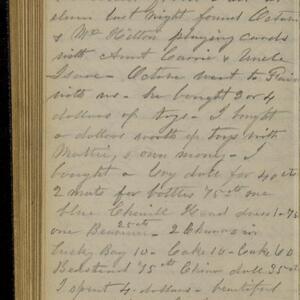 elven last night found Octave
& Mr Hilton playing cards
with Aunt Carrie & Uncle
Isaac - Octave went to Fair
with us - he bought 3 or 4
dollars of toys - I bought
a dollars worth of toys with
Mattie's own money - I
bought a boy doll for 40 cts
2 mats for bottles 75 cts one
blue Chenill Head dress 1.75
one 25 cts 2 China
Lucky Bag 10 - Cake 10 - Cake 60
Bedstead 75 cts China doll 35 cts
I spent 4 dollars - beautiful